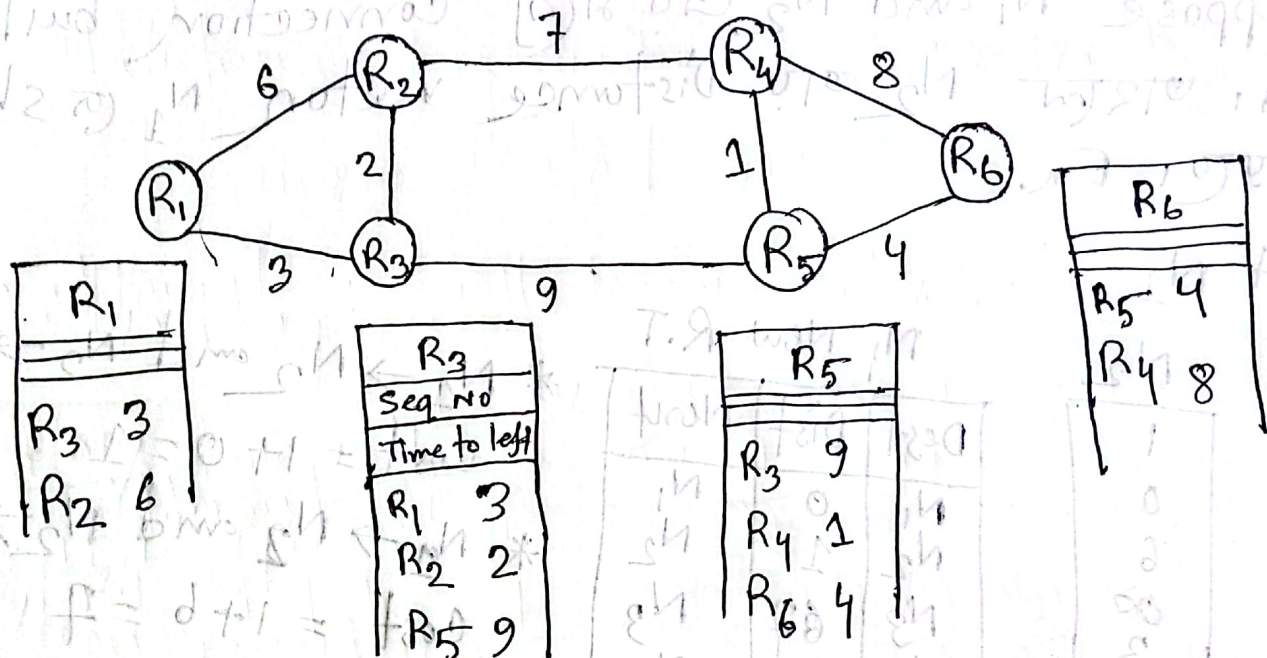 7
R2
R4
6
8
R1
2
1
R6
R3
R5
3
9
4
R1
R3 3
R2 6
R3
Seq No
Time to left
R1 3
R2 2
R5 9
R5
R3 9
R4 1
R6 4
R6
R5 4
R4 8